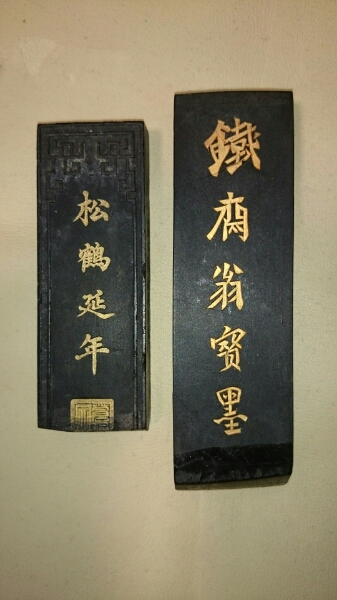 松鶴延年
鐵斋翁寶墨